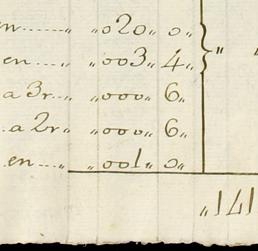 en...... „020„ 0„
en..... „003„ 4„ „
a 3r...... „000„ 6„
a 2r..... „000„ 6„
en...... „001„ 0„
„141„